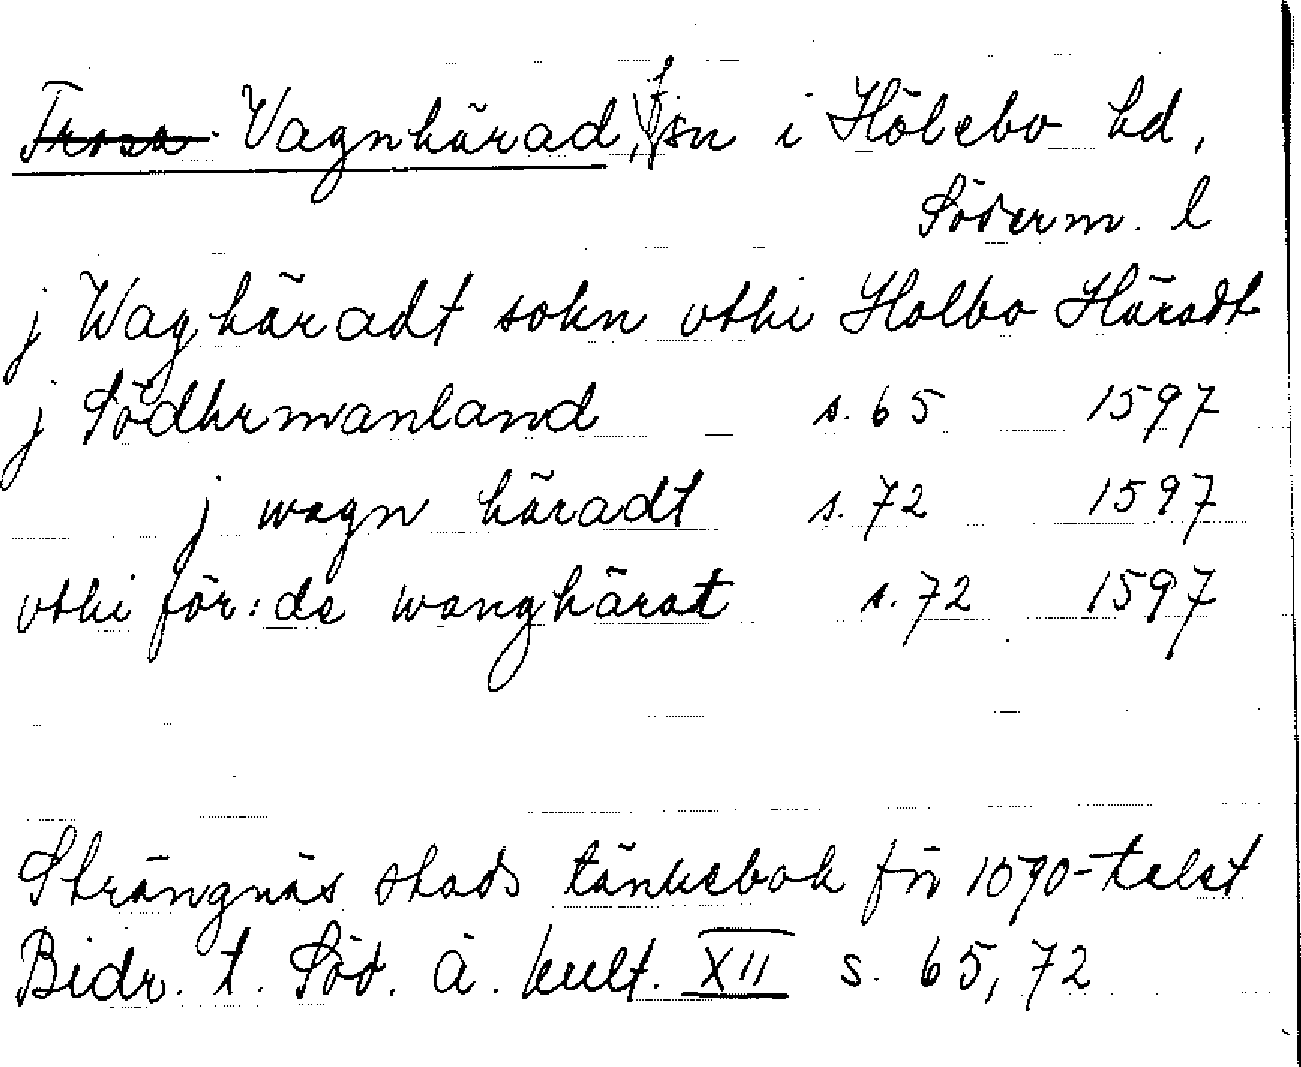 Vagnhärad, sn i Hölebo hd,
Söderm. l
j Waghäradt sokn vthi Holbo Häradt
j Södhrmanland s. 65 1597
j wagn häradt s. 72 1597
vthi för:de wanghärat s. 72 1597
Strängnäs stads tänkebok för 1590-talet
Bidr. t. Söd. Ä. kult. XII s. 65, 72